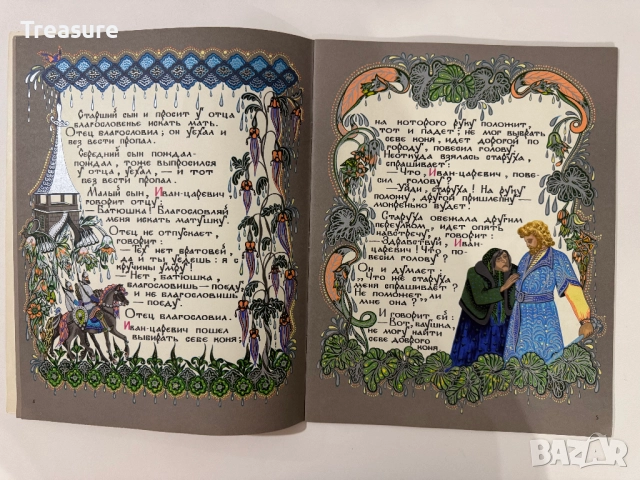 Treasure
Старший сын и просит у отца
благословенье искать мать.
Отец благословил; он уехал и
без вести пропал.
Средний сын пождал-
пождал, тоже выпросился
у отца, уехал, — и тот
без вести пропал.
Малый сын, Иван-царевич
говорит отцу:
— Батюшка! Благословляй
меня искать матушку.
Отец не отпускает,
говорит:
— Тех нет братовей,
да и ты уедешь: я с
кручины умру!
— Нет, батюшка,
благословишь — поеду,
и не благословишь
— поеду.
Отец благословил.
Иван-царевич пошел
выбирать себе коня;
на которого руку положит,
тот и падет; не мог выбрать
себе коня, идет дорогой по
городу, повесил голову.
Неоткуда взялась старуха,
спрашивает:
— Что, Иван-царевич, пове-
сил голову?
— Уйди, старуха! На руку
положу, другой пришлепну —
мокренько будет!
Старуха обежала другим
переулком, идет опять
навстречу, говорит:
— Здравствуй, Иван-
царевич! Что, по-
весил голову?
Он и думает:
„Что же старуха
меня спрашивает?
Не поможет ли
мне она?"
И говорит ей:
— Вот, баушка,
не могу найти
себе доброго
коня.
4
5
BAZAR